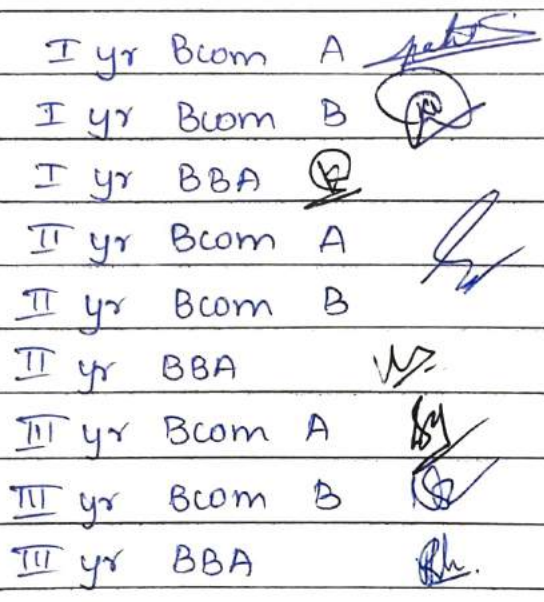 I yr Bcom A
I yr Bcom B
I yr BBA
II yr Bcom A
II yr Bcom B
II yr BBA
III yr Bcom A
III yr Bcom B
III yr BBA